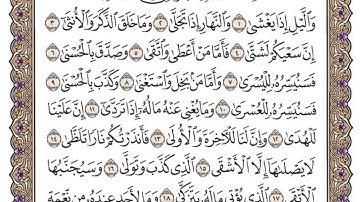 وَالَّيْلِ إِذَا يَغْشَىٰ ١ وَالنَّهَارِ إِذَا تَجَلَّىٰ ٢ وَمَا خَلَقَ الذَّكَرَ وَالْأُنثَىٰ ٣
إِنَّ سَعْيَكُمْ لَشَتَّىٰ ٤ فَأَمَّا مَنْ أَعْطَىٰ وَاتَّقَىٰ ٥ وَصَدَّقَ بِالْحُسْنَىٰ ٦
فَسَنُيَسِّرُهُ لِلْيُسْرَىٰ ٧ وَأَمَّا مَن بَخِلَ وَاسْتَغْنَىٰ ٨ وَكَذَّبَ بِالْحُسْنَىٰ ٩
فَسَنُيَسِّرُهُ لِلْعُسْرَىٰ ١٠ وَمَا يُغْنِي عَنْهُ مَالُهُ إِذَا تَرَدَّىٰ ١١ إِنَّ عَلَيْنَا
لَلْهُدَىٰ ١٢ وَإِنَّ لَنَا لَلْآخِرَةَ وَالْأُولَىٰ ١٣ فَأَنذَرْتُكُمْ نَارًا تَلَظَّىٰ ١٤
لَا يَصْلَاهَا إِلَّا الْأَشْقَى ١٥ الَّذِي كَذَّبَ وَتَوَلَّىٰ ١٦ وَسَيُجَنَّبُهَا
الْأَتْقَى ١٧ الَّذِي يُؤْتِي مَالَهُ يَتَزَكَّىٰ ١٨ وَمَا لِأَحَدٍ عِندَهُ مِن نِّعْمَةٍ